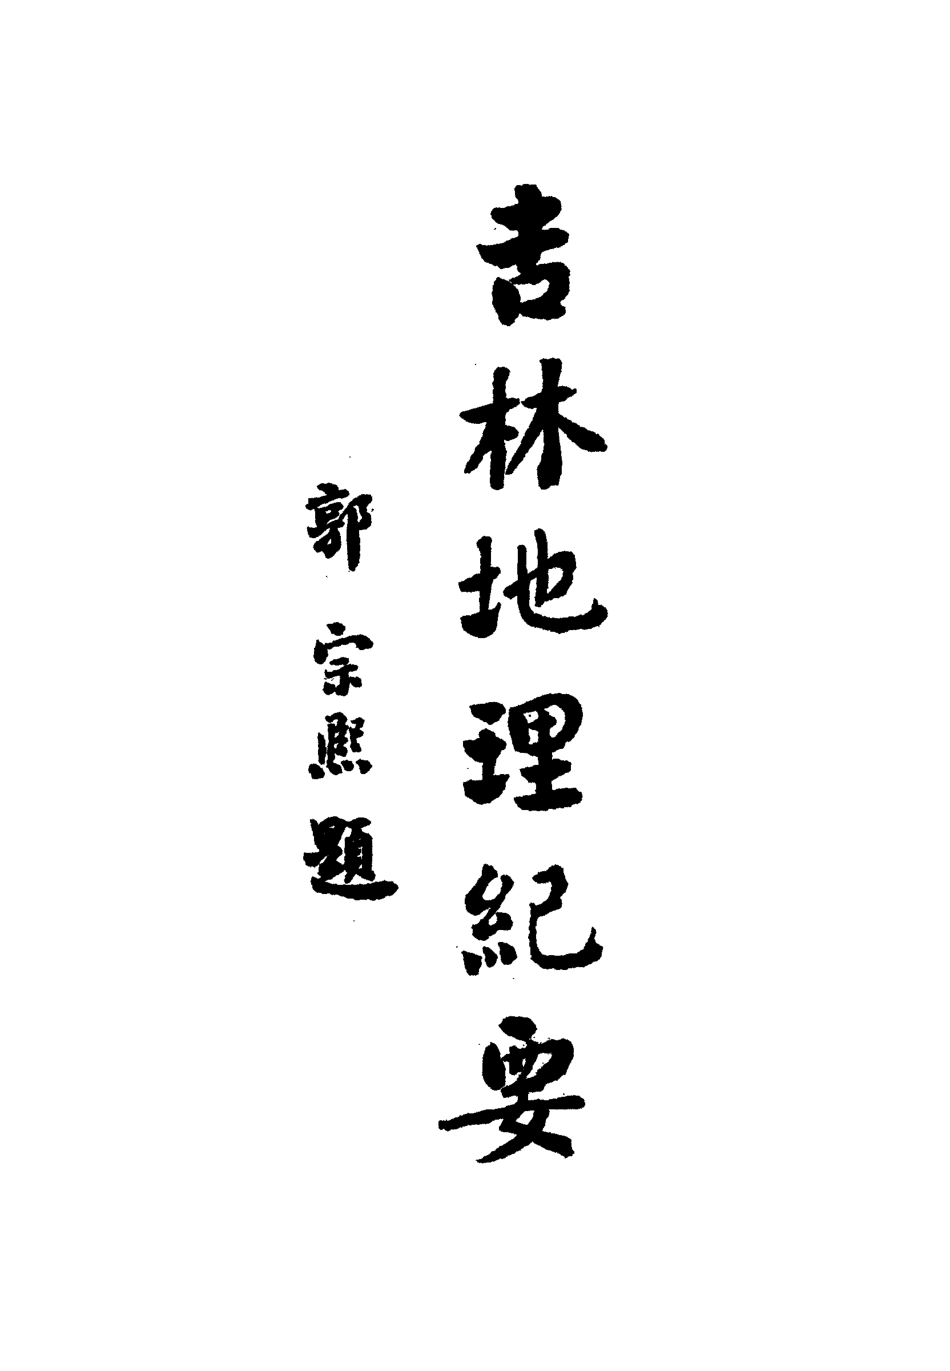 吉林地理紀要
郭宗熙題